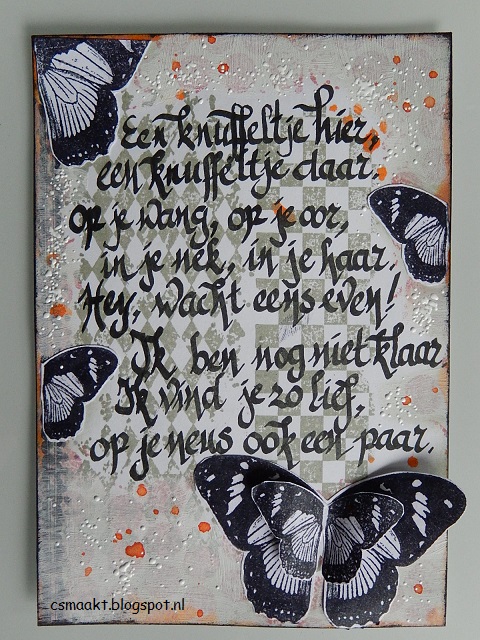 Een knuffeltje hier,
een knuffeltje daar.
Op je wang, op je oor,
in je nek, in je haar.
Hey, wacht eens even!
Ik ben nog niet klaar
Ik vind je zo lief,
op je neus ook een paar.
csmaakt.blogspot.nl